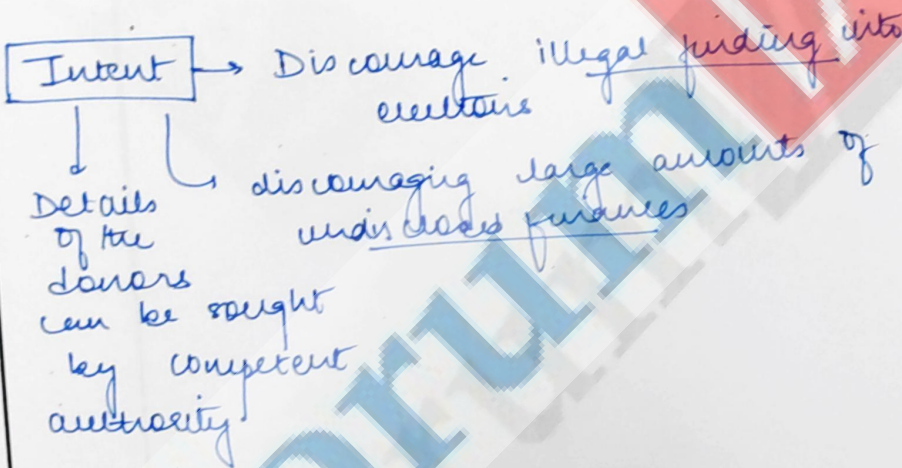 Intent → Discourage illegal funding into
elections
discouraging large amounts of
undisclosed finances
Details
of the
donors
can be sought
by competent
authority
orum